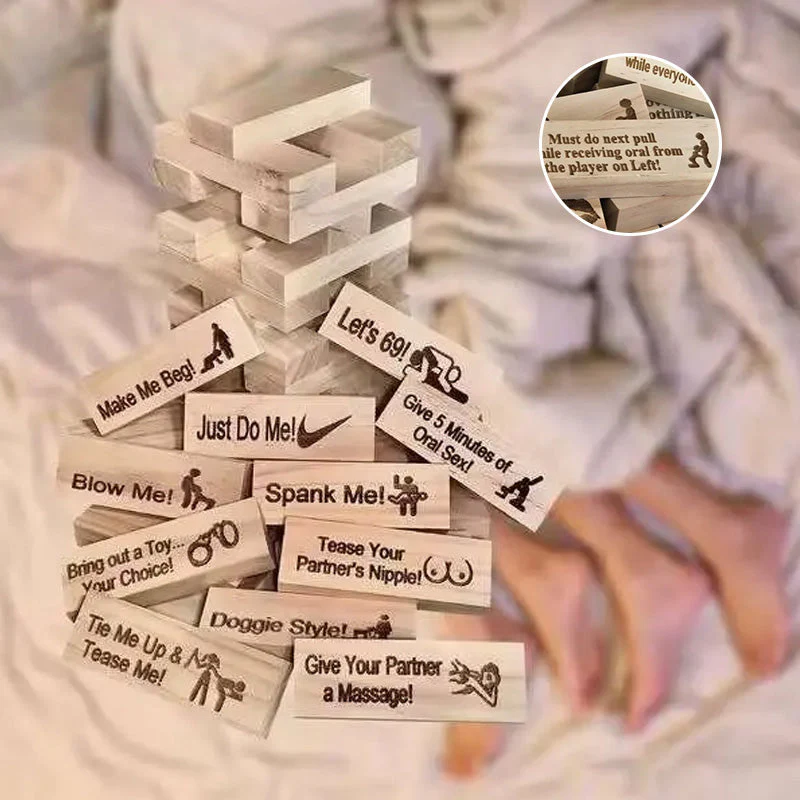 while everyone
othing
Must do next pull
while receiving oral from
the player on Left!
Let's 69!
Make Me Beg!
Give 5 Minutes of
Oral Sex!
Just Do Me!
Blow Me!
Spank Me!
Bring out a Toy...
Your Choice!
Tease Your
Partner's Nipple!
Doggie Style!
Tie Me Up &
Tease Me!
Give Your Partner
a Massage!